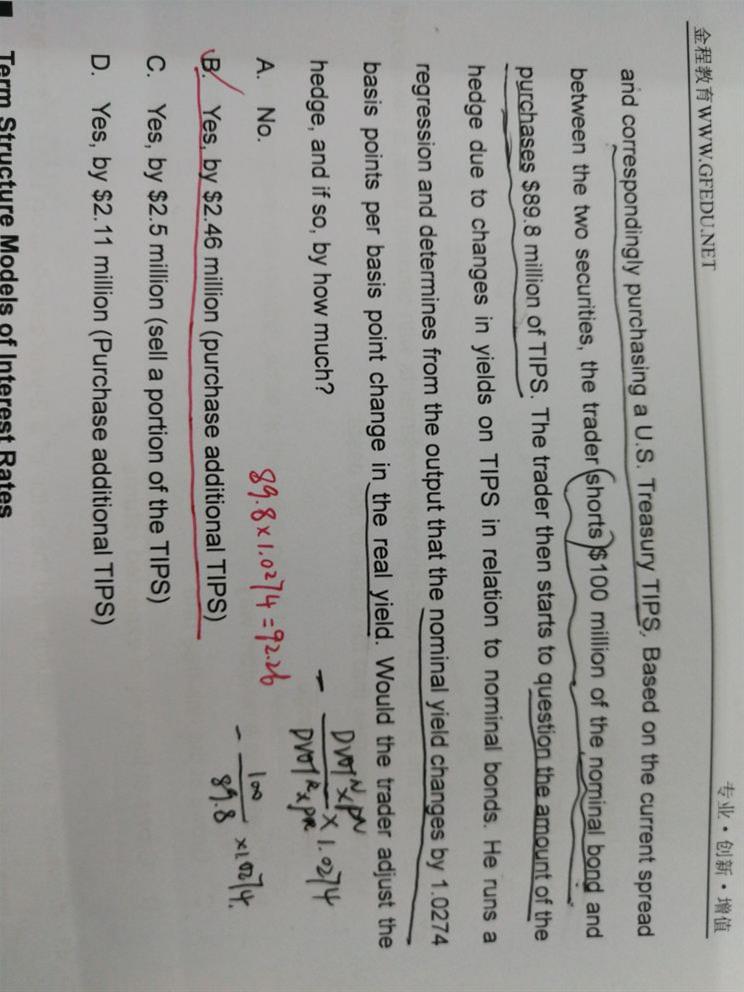 金程教育 WWW.GFEDU.NET
专业·创新·增值
and correspondingly purchasing a U.S. Treasury TIPS. Based on the current spread
between the two securities, the trader shorts $100 million of the nominal bond and
purchases $89.8 million of TIPS. The trader then starts to question the amount of the
hedge due to changes in yields on TIPS in relation to nominal bonds. He runs a
regression and determines from the output that the nominal yield changes by 1.0274
basis points per basis point change in the real yield. Would the trader adjust the
hedge, and if so, by how much?
A. No.
89.8×1.0274=92.26
B. Yes, by $2.46 million (purchase additional TIPS)
C. Yes, by $2.5 million (sell a portion of the TIPS)
D. Yes, by $2.11 million (Purchase additional TIPS)
- DV01ᴺ×Pᴺ
DV01ᴿ×Pᴿ × 1.0274
- 100
89.8 ×1.0274.
Term Structure Models of Interest Rates